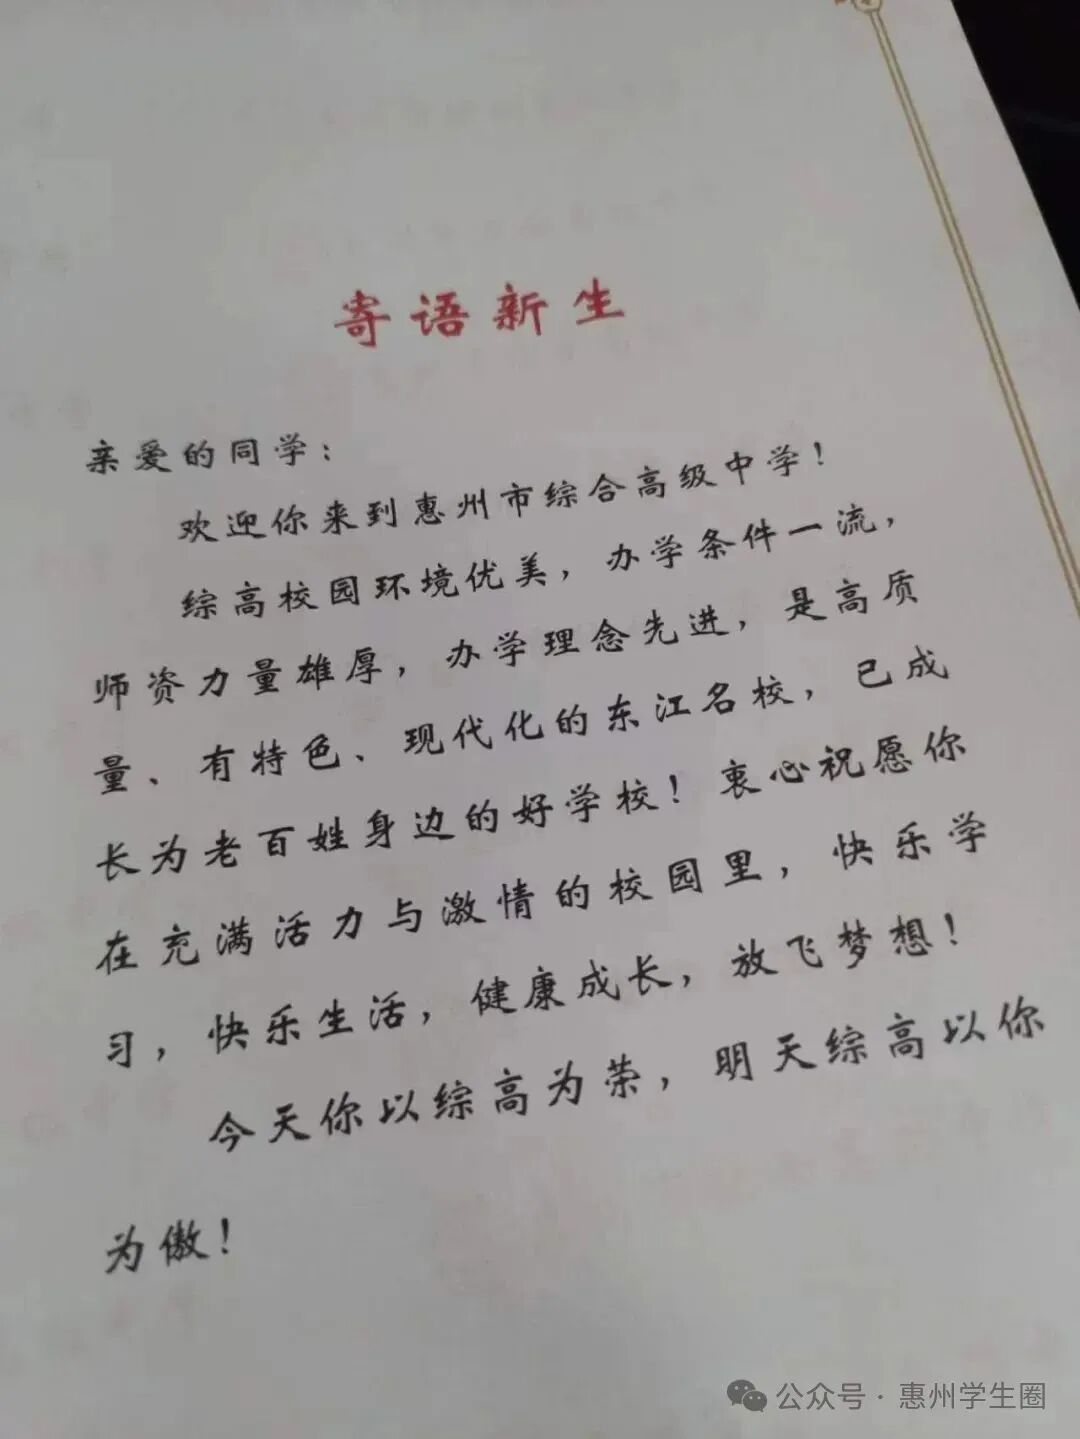 寄语新生
亲爱的同学：
欢迎你来到惠州市综合高级中学！
综高校园环境优美，办学条件一流，
师资力量雄厚，办学理念先进，是高质
量、有特色、现代化的东江名校，已成
长为老百姓身边的好学校！衷心祝愿你
在充满活力与激情的校园里，快乐学
习，快乐生活，健康成长，放飞梦想！
今天你以综高为荣，明天综高以你
为傲！
公众号·惠州学生圈